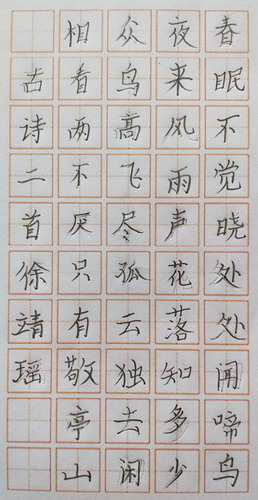 春眠不觉晓处处闻啼鸟
夜来风雨声花落知多少
众鸟高飞尽孤云独去闲
相看两不厌只有敬亭山
古诗二首徐靖瑶